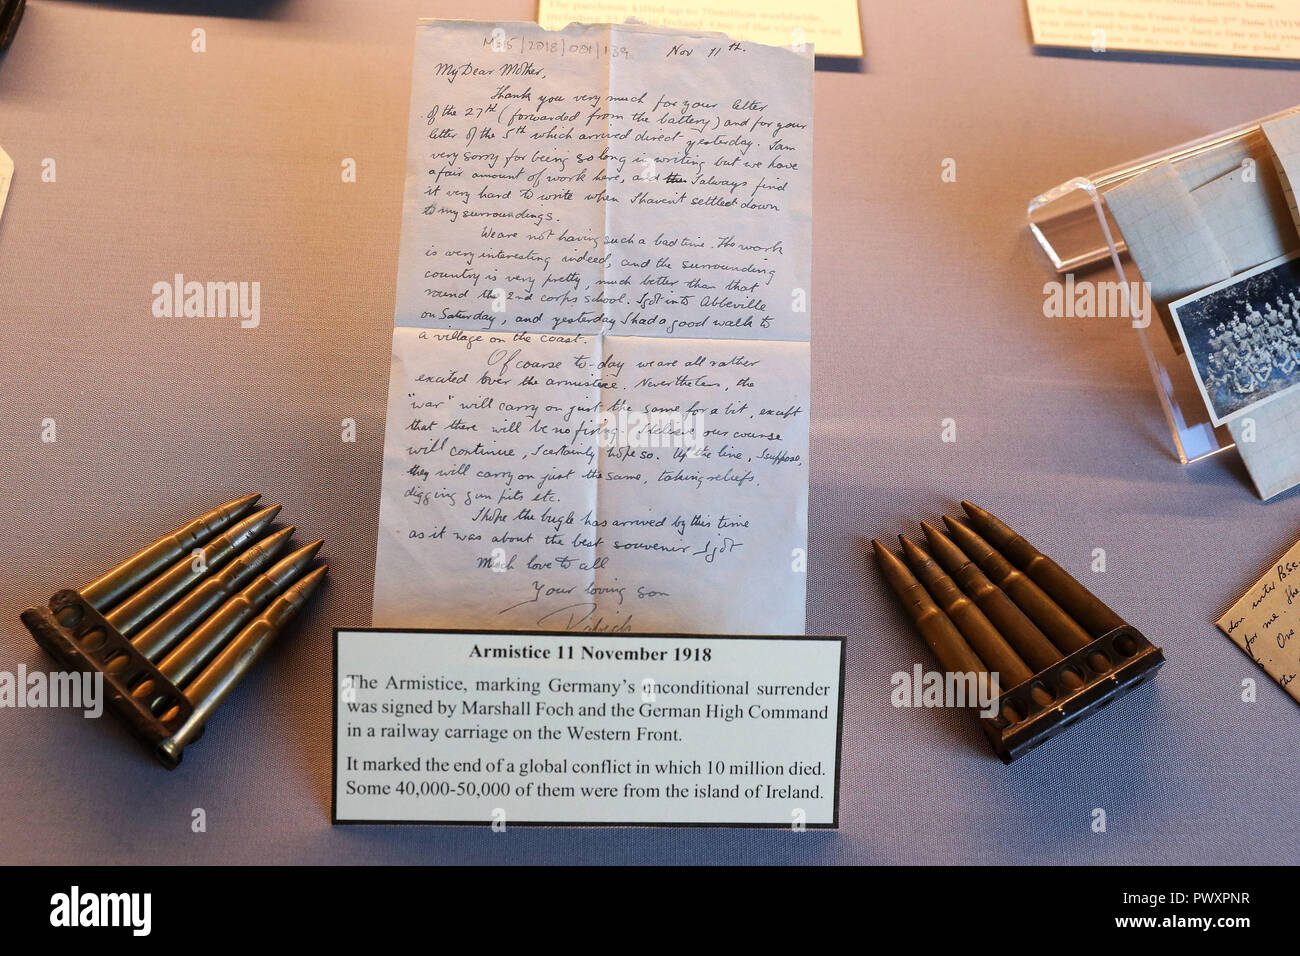 The pandemic killed up to 70million worldwide,
home.
MS15/2018/001/139
Nov 11th.
My Dear Mother,
Thank you very much for your letter
of the 27th (forwarded from the battery) and for your
letter of the 5th which arrived direct yesterday. I am
very sorry for being so long in writing but we have
a fair amount of work here, and I always find
it very hard to write when I haven't settled down
to my surroundings.
We are not having such a bad time. The work
is very interesting indeed, and the surrounding
country is very pretty, much better than that
round the 2nd corps school. I got into Abbeville
on Saturday, and yesterday I had a good walk to
a village on the coast.
Of course to-day we are all rather
excited over the armistice. Nevertheless, the
"war" will carry on just the same for a bit, except
that there will be no firing. I believe our course
will continue, I certainly hope so. Up the line, I suppose,
they will carry on just the same, taking reliefs,
digging gun pits etc.
I hope the bugle has arrived by this time
as it was about the best souvenir I got
Much love to all
Your loving son
Armistice 11 November 1918
The Armistice, marking Germany's unconditional surrender
was signed by Marshall Foch and the German High Command
in a railway carriage on the Western Front.
It marked the end of a global conflict in which 10 million died.
Some 40,000-50,000 of them were from the island of Ireland.
for me. The
One
the
a alamy stock photo
alamy
Image ID: PWXPNR
www.alamy.com